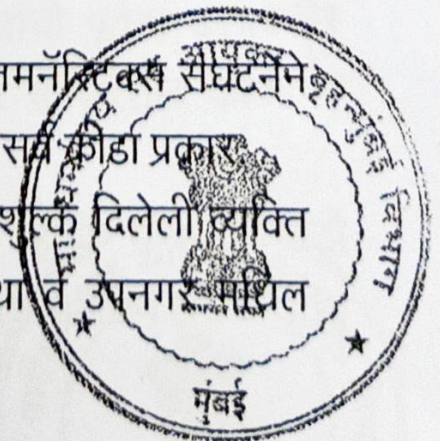 जमनॅस्टिक्स संघटनेने
सर्व क्रीडा प्रकार
शुल्क दिलेली व्यक्ति
था व उपनगर मधिल
आयुक्त बृहन्मुंबई विभाग
मुंबई